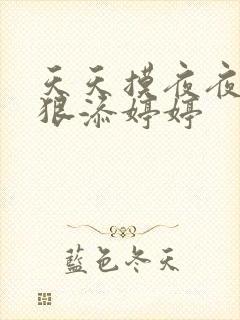 天天摸夜夜
狠添婷婷
藍色冬天